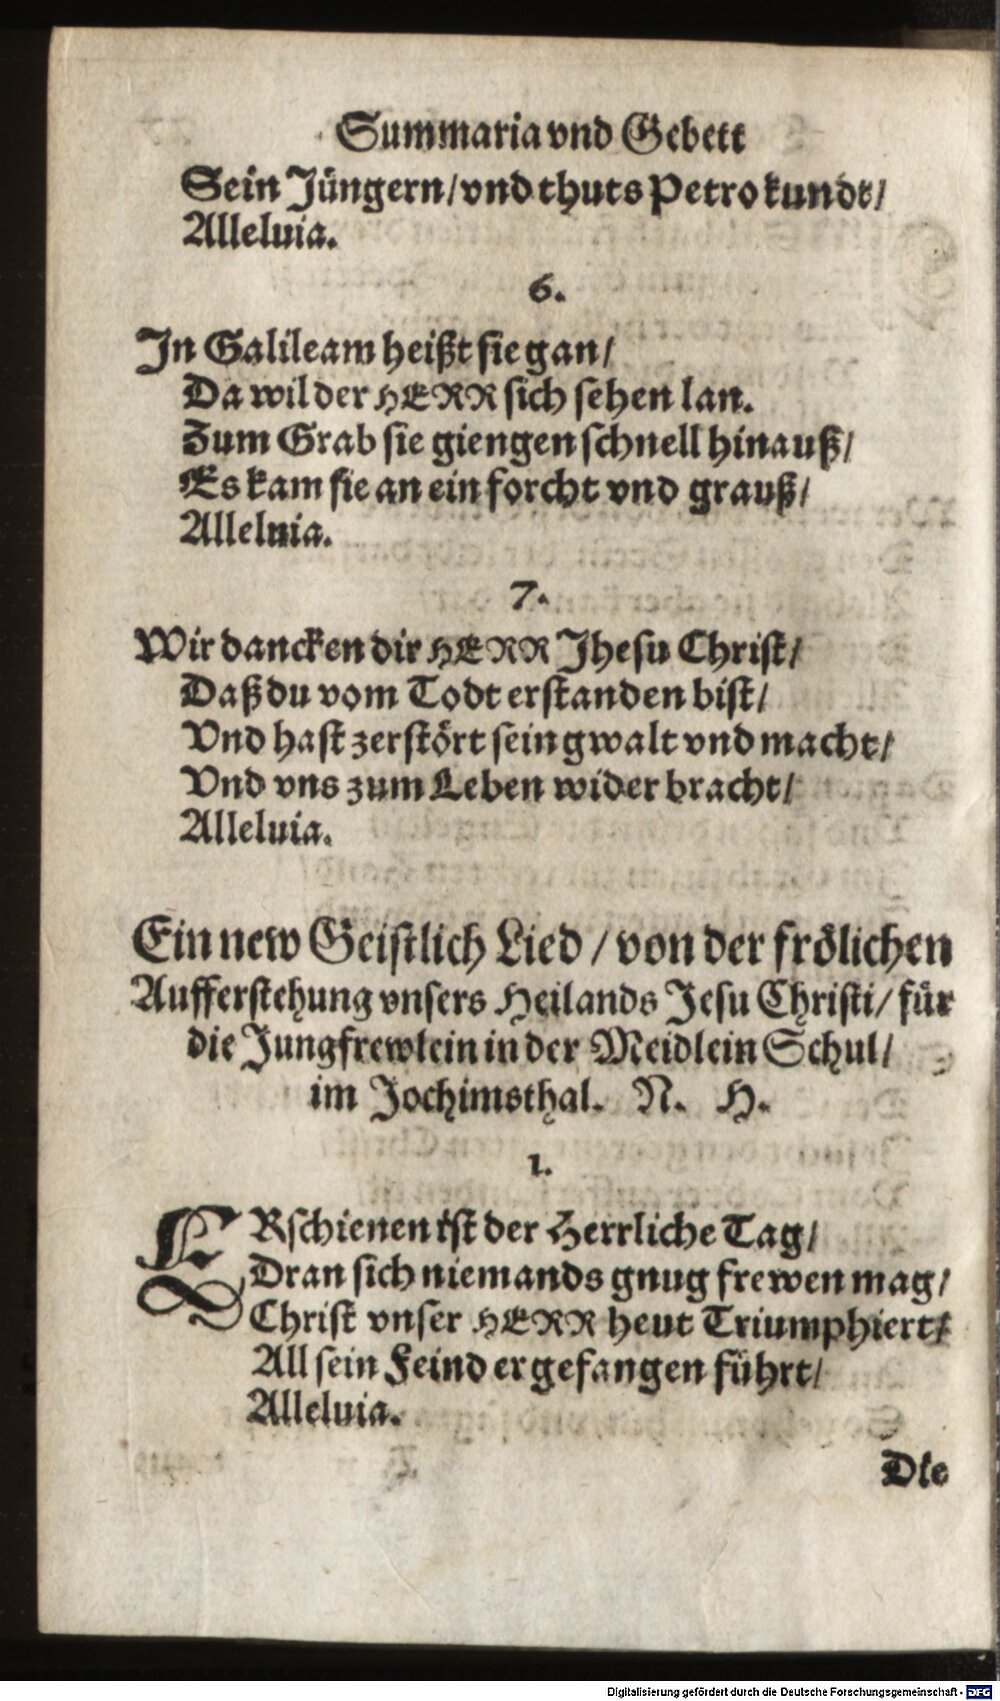 Summaria vnd Gebett
Sein Jüngern/ vnd thuts Petro kundt/
Alleluia.
6.
In Galileam heißt sie gan/
Da wil der HERR sich sehen lan.
Zum Grab sie giengen schnell hinauß/
Es kam sie an ein forcht vnd grauß/
Alleluia.
7.
Wir dancken dir HERR Jhesu Christ/
Daß du vom Todt erstanden bist/
Vnd hast zerstört sein gwalt vnd macht/
Vnd vns zum Leben wider bracht/
Alleluia.
Ein new Geistlich Lied / von der frölichen
Aufferstehung vnsers Heilands Jesu Christi/ für
die Jungfrewlein in der Meidlein Schul/
im Jochimsthal. N. H.
1.
ERschienen ist der Herrliche Tag/
Dran sich niemands gnug frewen mag/
Christ vnser HERR heut Triumphiert/
All sein Feind er gefangen führt/
Alleluia.
Die
Digitalisierung gefördert durch die Deutsche Forschungsgemeinschaft - DFG